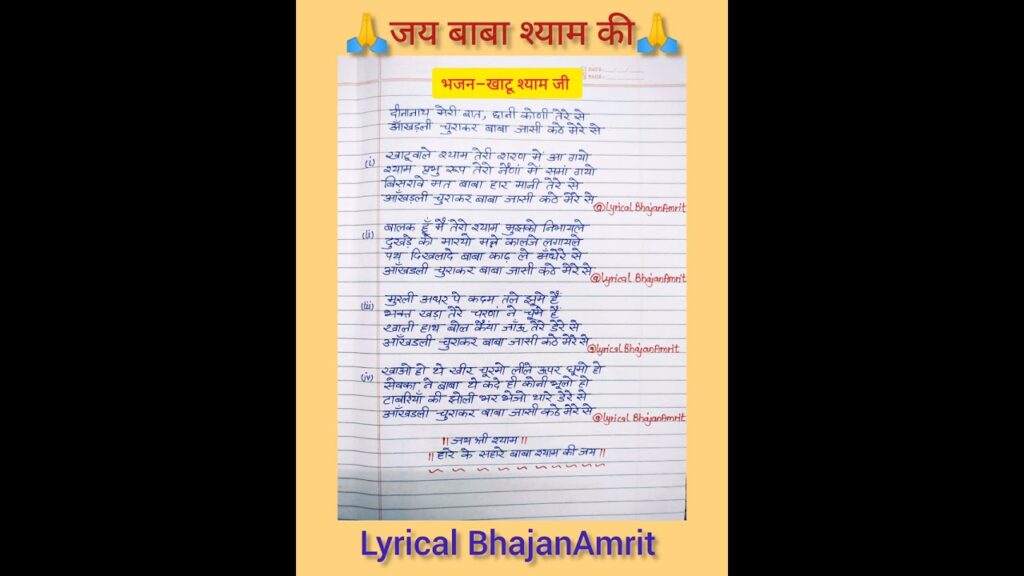 🙏जय बाबा श्याम की🙏
DATE: __/__/__
PAGE:
भजन-खाटू श्याम जी
दीनानाथ मेरी बात, छानी कोणी तेरे से
आँखडली चुराकर बाबा जासी कठे मेरे से
(i) खाटूवाले श्याम तेरी शरण में आ गयो
श्याम प्रभु रूप तेरो नैंणां में समां गयो
बिसरावे मत बाबा हार मानी तेरे से
आँखडली चुराकर बाबा जासी कठे मेरे से
@Lyrical BhajanAmrit
(ii) बालक हूँ मैं तेरो श्याम मुझको निभायले
दुखड़े को मारयो मन्ने कालजे लगायले
पथ दिखलादे बाबा काढ़ ले अँधेरे से
आँखडली चुराकर बाबा जासी कठे मेरे से
@Lyrical BhajanAmrit
(iii) मुरली अधर पे कदम तले झूमे हैं
भक्त खड़ा तेरे चरणां ने चूमे हैं
खाली हाथ बोल कैंया जाँऊ तेरे डेरे से
आँखडली चुराकर बाबा जासी कठे मेरे से
@Lyrical BhajanAmrit
(iv) खाओ हो थे खीर चूरमो लीले ऊपर घूमो हो
सेवका ने बाबा थे कदे ही कोनी भूलो हो
टाबरियाँ की झोली भर भेजो थारे डेरे से
आँखडली चुराकर बाबा जासी कठे मेरे से
@Lyrical BhajanAmrit
|| जय श्री श्याम ||
|| हारे के सहारे बाबा श्याम की जय ||
Lyrical BhajanAmrit